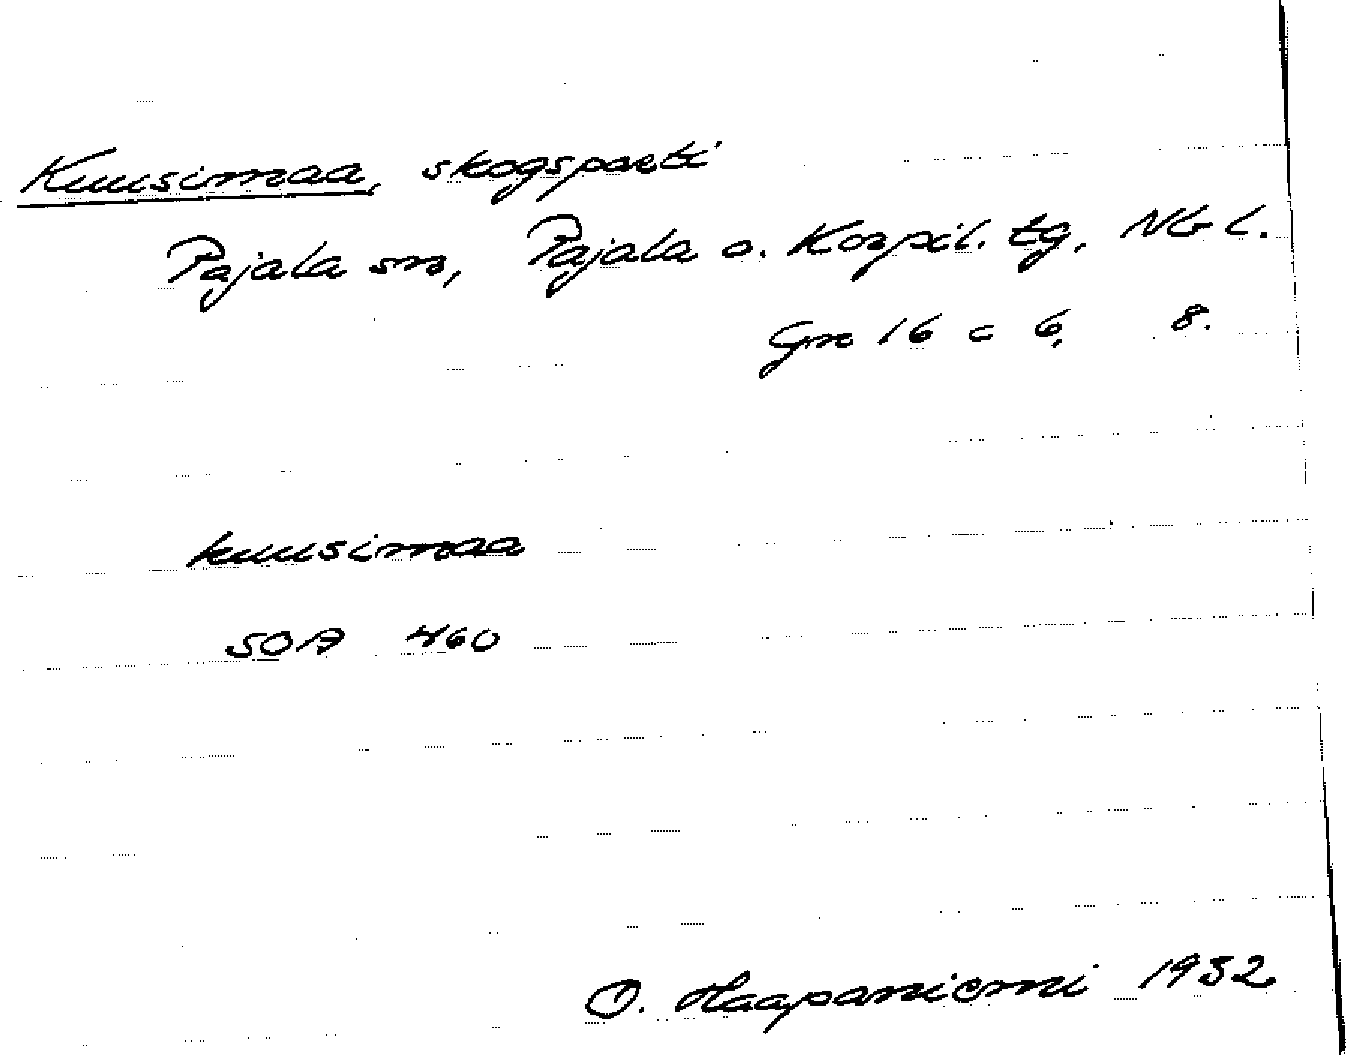 Kuusimaa, skogsparti
Pajala sn, Pajala o. Korpil. tg, Nb l.
Gre 16 c 6, 8.
kuusimaa
SOA 460
O. Haapaniemi 1932